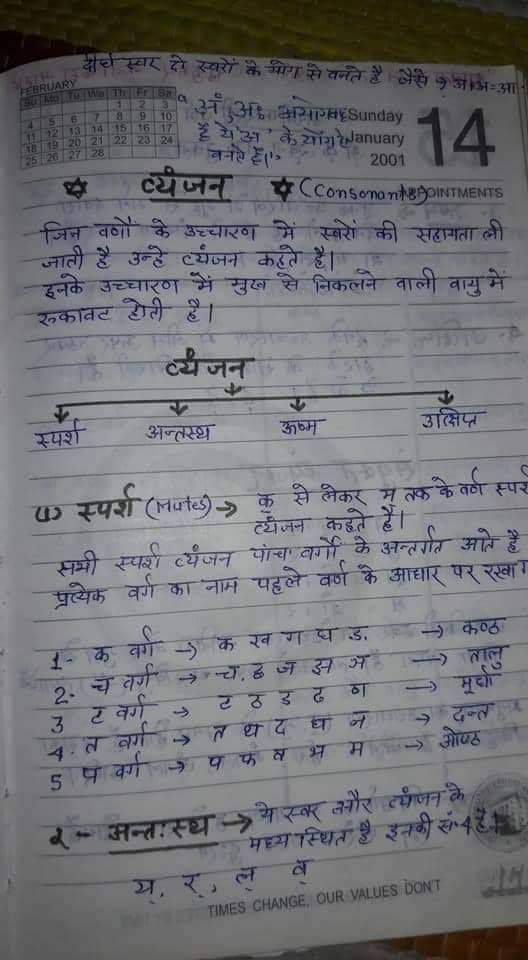 दीर्घ स्वर दो स्वरों के योग से बनते है जैसे अ+अ=आ
FEBRUARY
Su Mo Tu We Th Fr Sa
1 2 3
4 5 6 7 8 9 10
11 12 13 14 15 16 17
18 19 20 21 22 23 24
25 26 27 28
अं, अः अयोगवाह
है ये 'अ' के योग से
बनते है।
Sunday
January
2001
14
APPOINTMENTS
व्यंजन (Consonants)
जिन वर्णो के उच्चारण मे स्वरों की सहायता ली
जाती है उन्हे व्यंजन कहते है।
इनके उच्चारण में मुख से निकलने वाली वायु में
रुकावट होती है।
व्यंजन
स्पर्श अन्तस्थ ऊष्म उत्क्षिप्त
(1) स्पर्श (Mutes) → क् से लेकर म तक के वर्ण स्पर्श
व्यंजन कहते है।
सभी स्पर्श व्यंजन पांच वर्गो के अन्तर्गत आते है
प्रत्येक वर्ग का नाम पहले वर्ण के आधार पर रखा
1- क वर्ग → क ख ग घ ड. → कण्ठ
2. च वर्ग → च. छ ज झ ञ → तालु
3 ट वर्ग → ट ठ ड ढ ण → मूर्धा
4. त वर्ग → त थ द ध न → दन्त
5 प वर्ग → प फ ब भ म → ओष्ठ
२ - अन्तःस्थ → ये स्वर और व्यंजन के
मध्य स्थित है इनकी सं. 4 है।
य्, र्, ल् व्
TIMES CHANGE, OUR VALUES DON'T